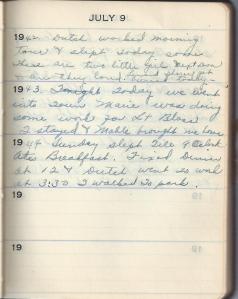 JULY 9
1942. Dutch worked morning
Tour & slept today some.
these are two little girl next door
& are they loud.
1943. Tonight Today we went
into town Marie was doing
some work for Lt Blase
I stayed & Mable brought me home
1944 Sunday slept till 9 Oclock
Ate Breakfast. Fixed Dinner
at 12 & Dutch went to work
at 3:30 I walked to park.
19
19